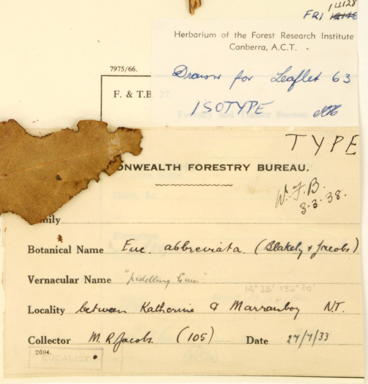 FRI
Herbarium of the Forest Research Institute
Canberra, A.C.T.
Drawn for Leaflet 63
ISOTYPE
7975/66.
F. & T.B.
TYPE
ONWEALTH FORESTRY BUREAU.
W.F.B.
8.3.38.
mily
Botanical Name Euc. abbreviata (Blakely & Jacobs)
Vernacular Name
Locality between Katherine & Marranboy N.T.
Collector M. R. Jacobs (105) Date 27/7/33
2094.